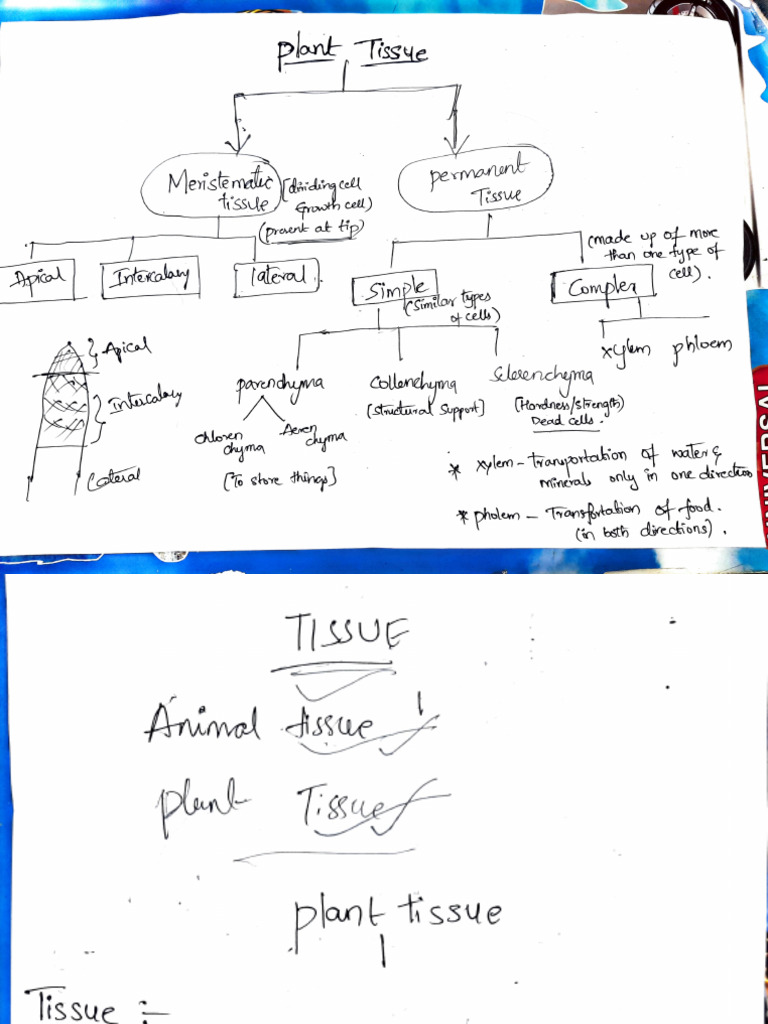 plant Tissue
Meristematic
tissue
[dividing cell
Growth cell)
(present at tip)
permanent
Tissue
Apical
Intercalary
lateral
(made up of more
than one type of
cell).
Simple
(Similar types
of cells)
Complex
xylem phloem
Apical
Intercalary
Lateral
parenchyma
Chloren
chyma
Aeren
chyma
[To store things]
Collenchyma
[Structural Support]
Sclerenchyma
(Hardness/strength)
Dead cells.
* xylem - Transportation of water &
minerals only in one direction
* pholem - Transfortation of food.
(in both directions).
VERSAL
TISSUE
Animal tissue
plant Tissue
plant tissue
Tissue :-